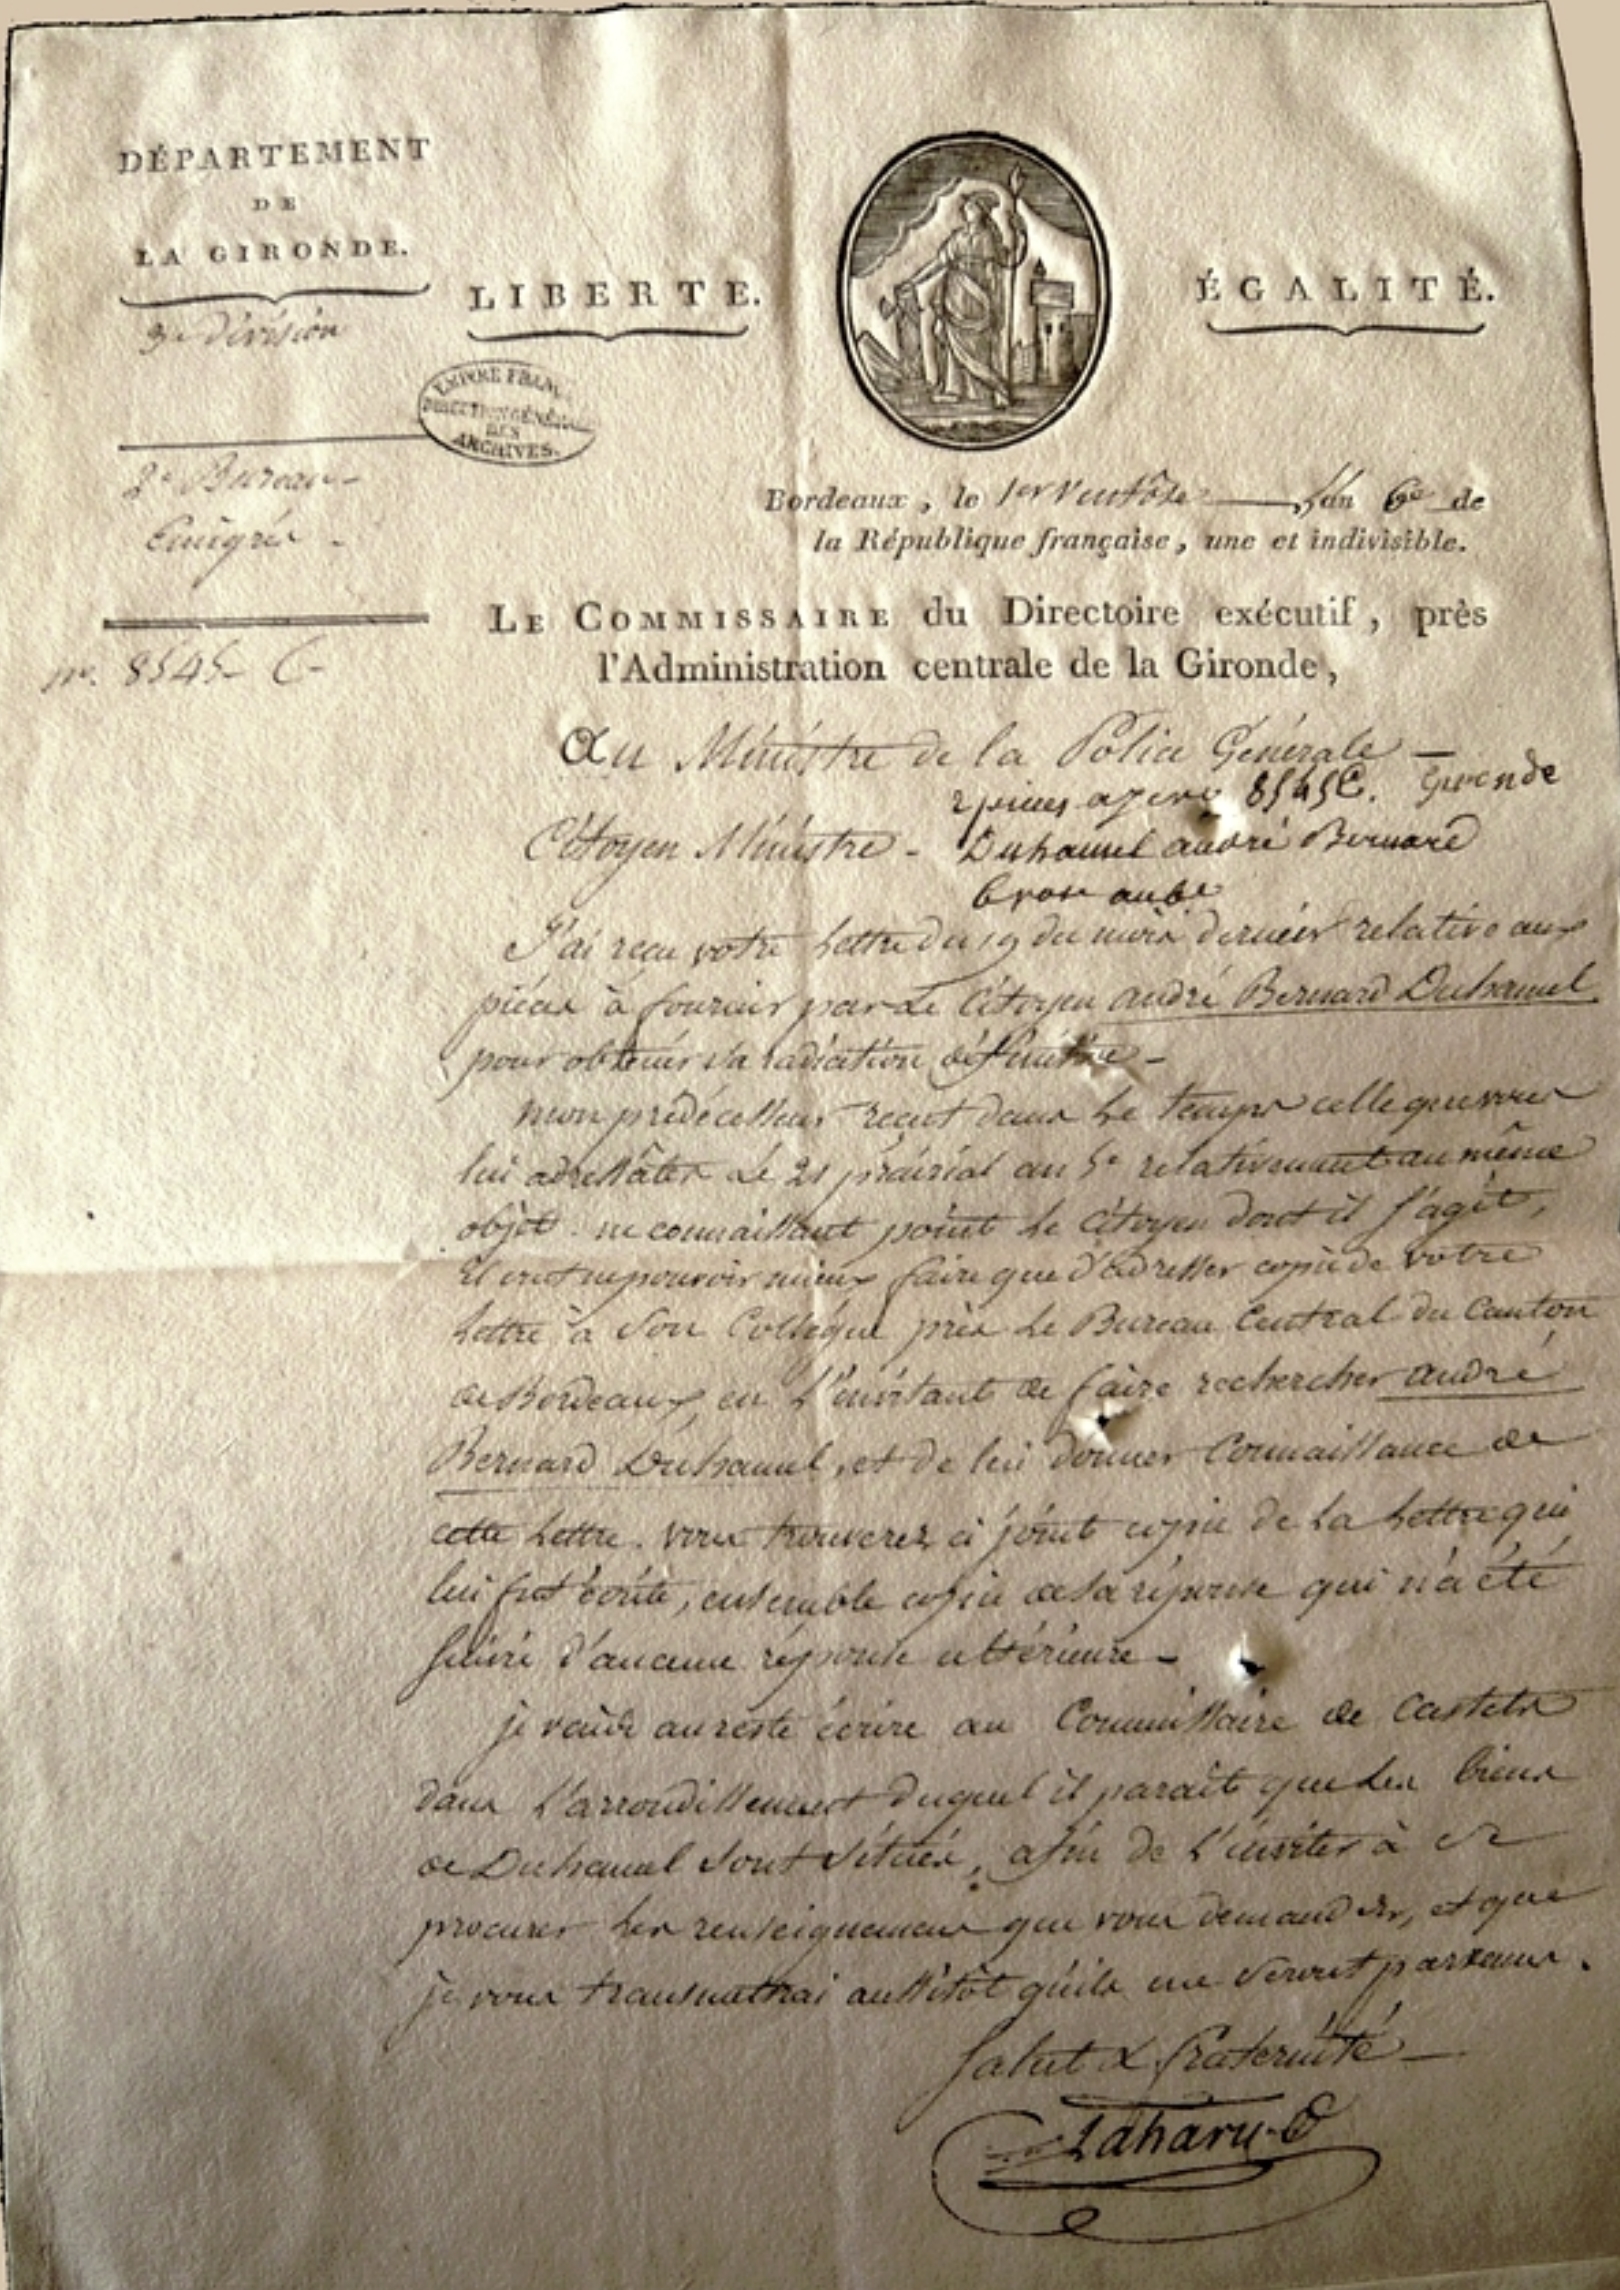 DÉPARTEMENT
DE
LA GIRONDE.
3e division
LIBERTÉ.
ÉGALITÉ.
EMPIRE FRANÇ.
DIRECTION GÉNÉRALE
DES
ARCHIVES.
2e Bureau
Emigrés
Bordeaux, le 1er Ventôse l'an 6e de
la République française, une et indivisible.
LE COMMISSAIRE du Directoire exécutif, près
l'Administration centrale de la Gironde,
no. 8545 C
Au Ministre de la Police Générale
2 pieces 8545C. Gironde
Citoyen Ministre - Duhamel andré Bernard
J'ai reçu votre Lettre du 19 du mois dernier relative aux
pièces à fournir par Le Citoyen andré Bernard Duhamel
pour obtenir sa radiation définitive -
mon prédécesseur reçut dans Le temps celle que vous
lui adressâtes Le 21 prairial an 5e relativement au même
objet. ne connaissant point Le Citoyen dont il s'agit,
il crut ne pouvoir mieux faire que d'adresser copie de votre
Lettre à son Collégue près Le Bureau Central du Canton
de Bordeaux, en L'invitant de faire rechercher andré
Bernard Duhamel, et de lui donner Connaissance de
cette Lettre. vous trouverez ci joint copie de La Lettre qui
lui fut écrite, ensemble copie de sa réponse qui n'a été
suivie d'aucune réponse ultérieure -
je vais au reste écrire au Commissaire de Castets
dans L'arrondissement duquel il parait que Les biens
de Duhamel sont situés, afin de L'inviter à se
procurer Les renseignemens que vous demandez, et que
je vous transmettrai aussitôt qu'ils me seront parvenus.
Salut & fraternité
Lahary